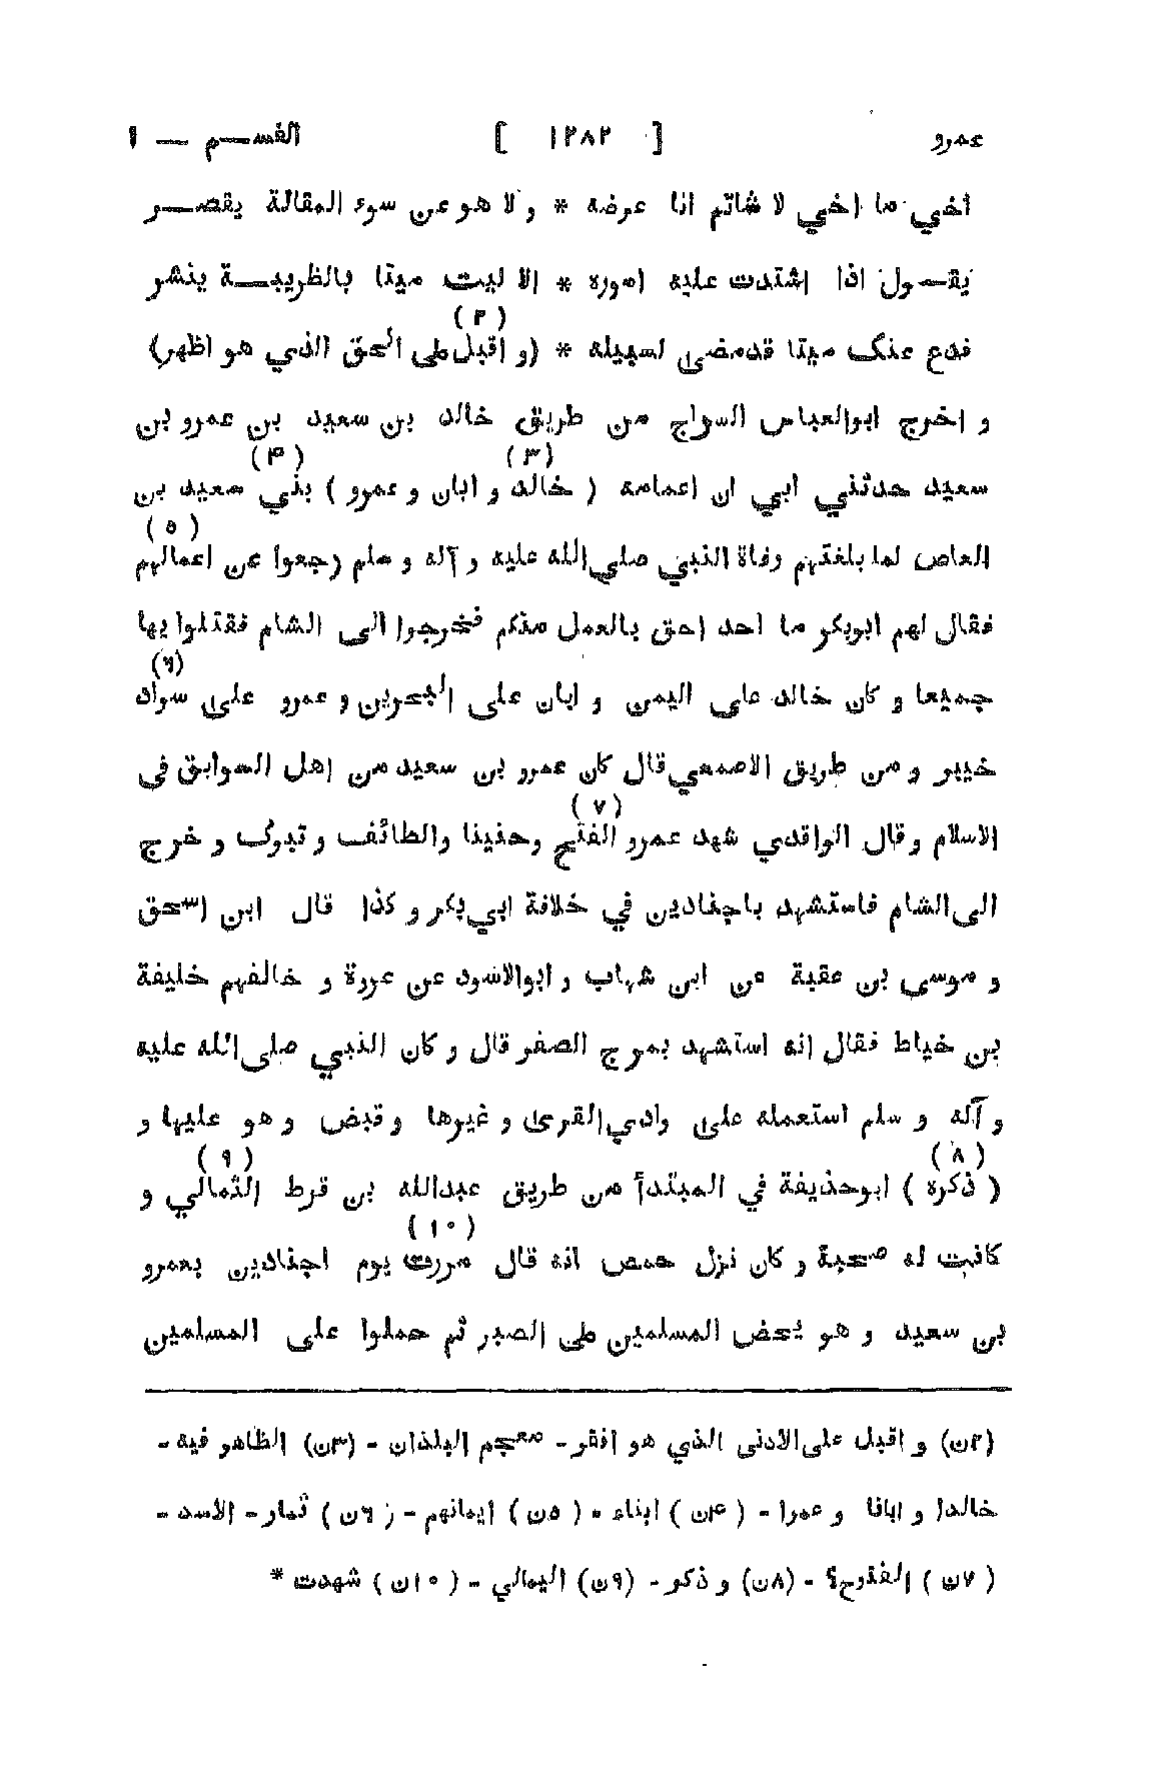 عمرو [ ١٢٨٢ ] القسم — ١
اخي ما اخي لا شاتم انا عرضه * و لا هو عن سوء المقالة يقصر
يقول اذا اشتدت عليه اموره * الا ليت ميتا بالظريبة ينشر
(٢)
فدع عنك ميتا قد مضى لسبيله * (و اقبل على الحق الذي هو اظهر)
و اخرج ابوالعباس السراج من طريق خالد بن سعيد بن عمرو بن
(٣) (٤)
سعيد حدثني ابي ان اعمامه ( خالد و ابان و عمرو ) بني سعيد بن
(٥)
العاص لما بلغتهم وفاة النبي صلى الله عليه و آله و سلم رجعوا عن اعمالهم
فقال لهم ابوبكر ما احد احق بالعمل منكم فخرجوا الى الشام فقتلوا بها
(٦)
جميعا و كان خالد على اليمن و ابان على البحرين و عمرو على سواد
خيبر و من طريق الاصمعي قال كان عمرو بن سعيد من اهل السوابق في
(٧)
الاسلام وقال الواقدي شهد عمرو الفتح وحنينا والطائف و تبوك و خرج
الى الشام فاستشهد باجنادين في خلافة ابي بكر و كذا قال ابن اسحق
و موسى بن عقبة عن ابن شهاب و ابوالاسود عن عروة و خالفهم خليفة
بن خياط فقال انه استشهد بمرج الصفر قال و كان النبي صلى الله عليه
و آله و سلم استعمله على وادي القرى و غيرها و قبض و هو عليها و
(٨) (٩)
( ذكره ) ابوحذيفة في المبتدأ من طريق عبدالله بن قرط الثمالي و
(١٠)
كانت له صحبة و كان نزل حمص انه قال مررت يوم اجنادين بعمرو
بن سعيد و هو يحض المسلمين على الصبر ثم حملوا على المسلمين
(٢ن) و اقبل على الادنى الذي هو افقر - معجم البلدان - (٣ن) الظاهر فيه -
خالدا و ابانا و عمرا - (٤ن) ابناء - (٥ن) ايمانهم - (٦ن) ثمار - الاسد -
(٧ن) الفتوح؟ - (٨ن) و ذكر - (٩ن) اليمالي - (١٠ن) شهدت *